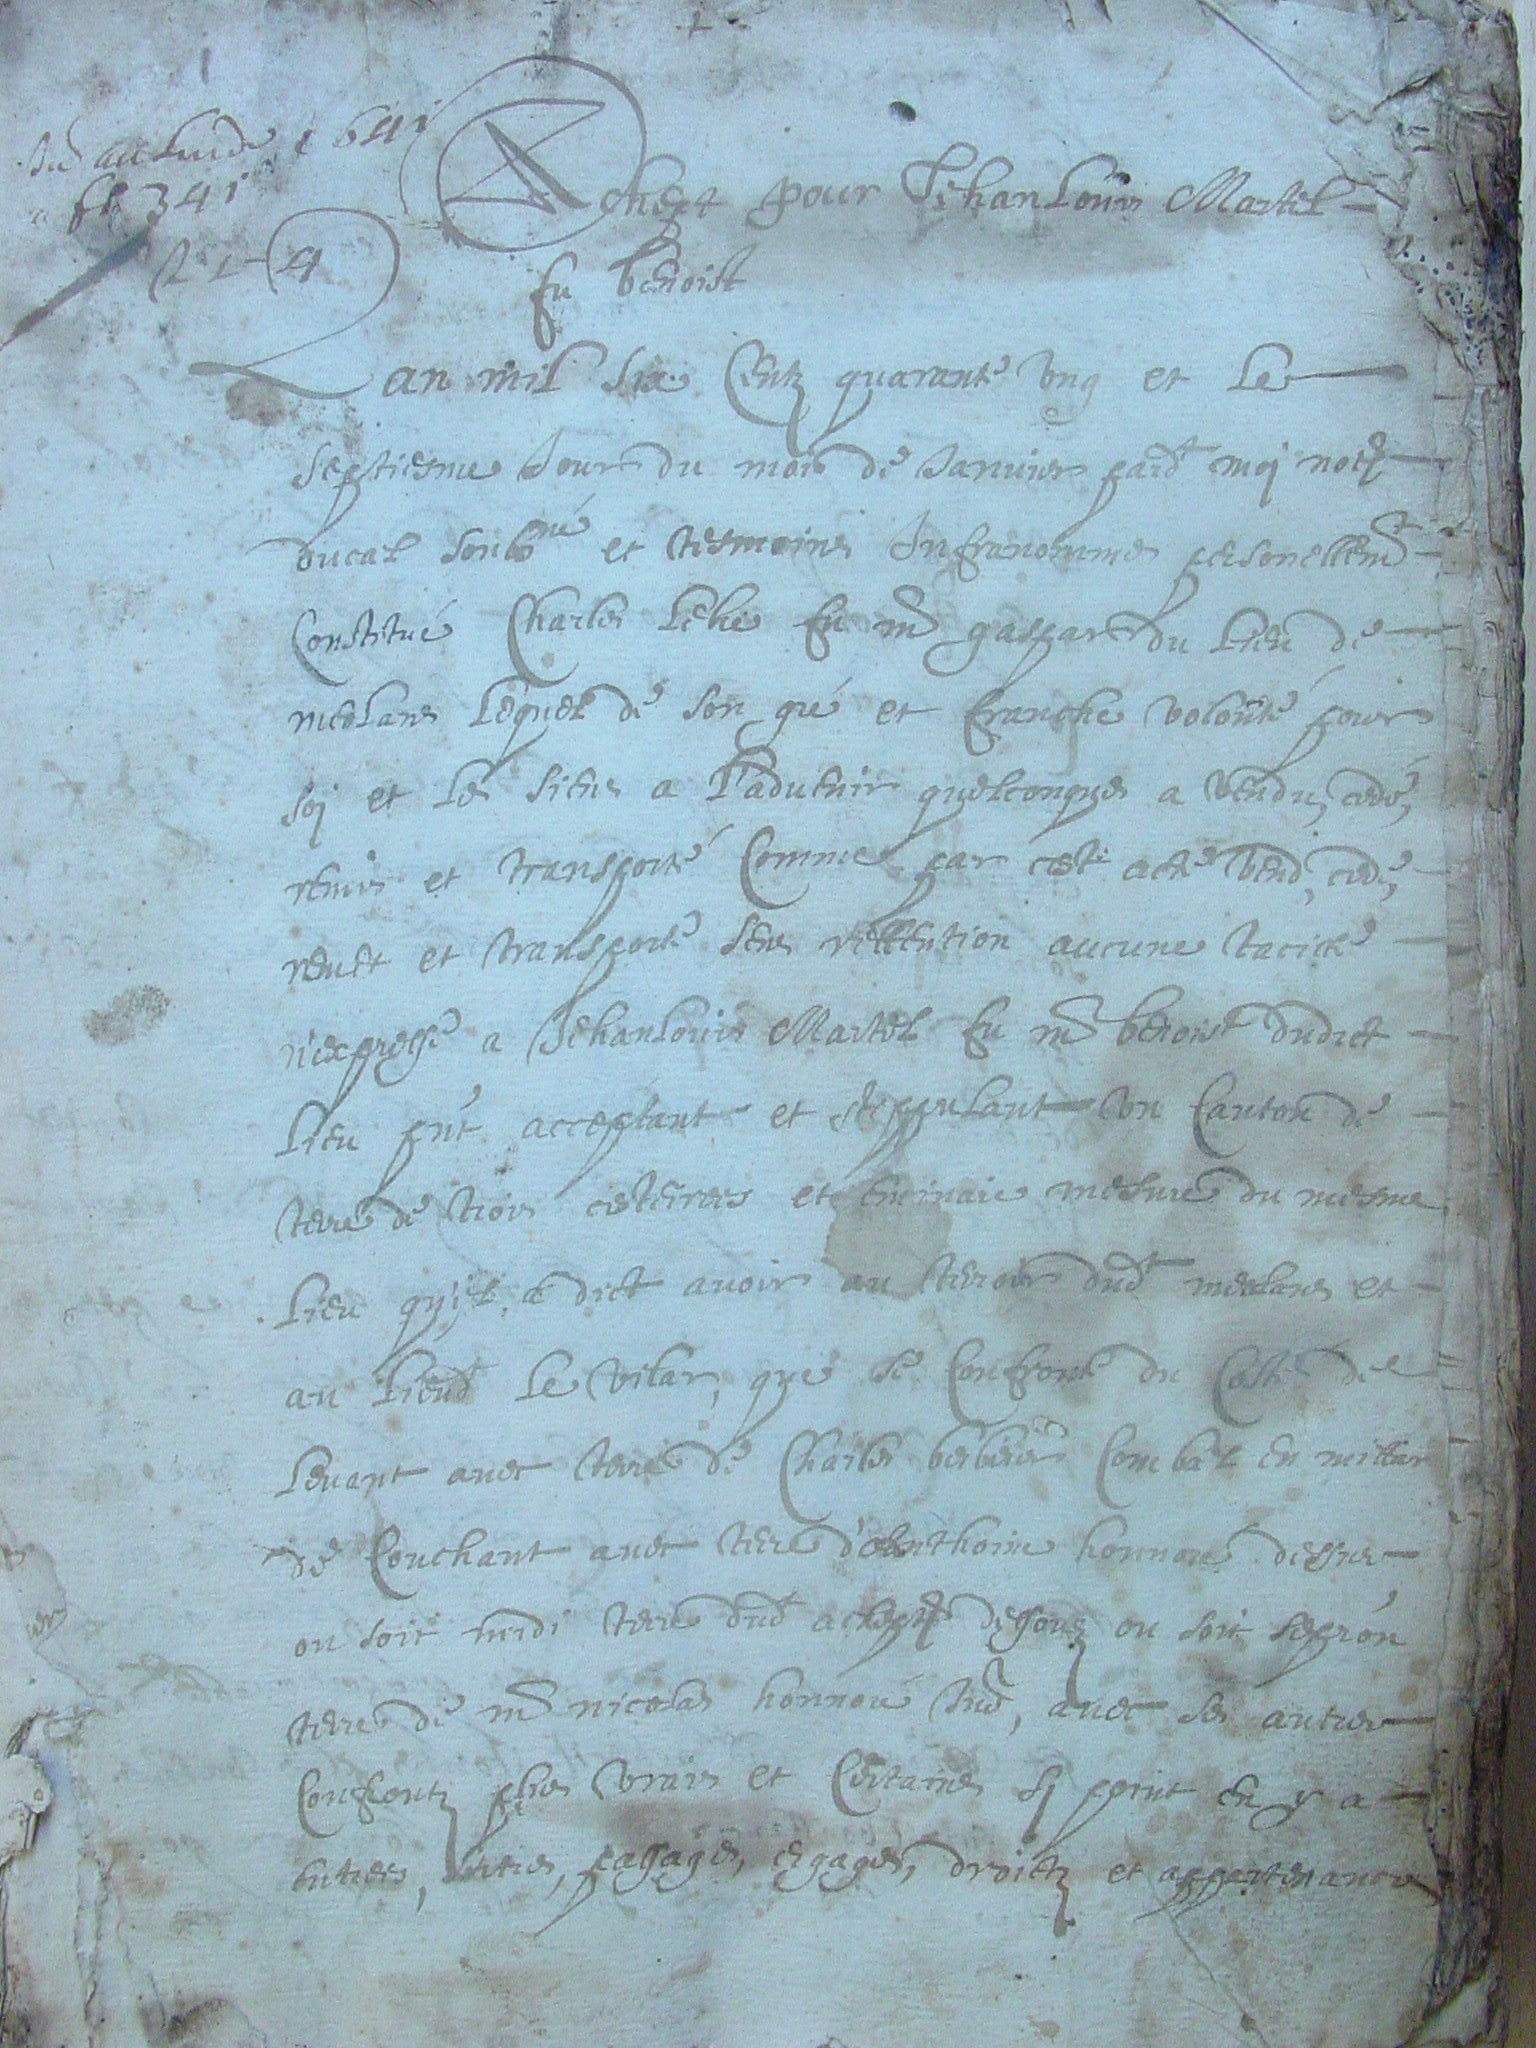 1641
fo 341
Achept pour Jehan Louis Martel
fu benoist
Lan mil six Centz quarante ung et le
septiesme Jour du mois de Janvier pardt moi notre
ducal soubné et tesmoins Infranommes personellemt
Constitué Charles fu mre gaspar du lieu de
meolans lequel de son gré et franche volonté pour
soj et les siens a l'advenir quelconques a vendu, cedé,
remis et transporté Comme par cest acte vend, cede,
remet et transporte sens rettention aucune tacite
n'expresse a Jehan Louis Martel fu mre benoist dudict
lieu pnt acceptant et steppulant un Canton de
terre de trois cesteirees et eminaie mesure du mesme
lieu qu'jl a dict avoir au terroir dudt meolans et
au lieudt le vilar, que se Confronte du Costé de
levant avec terre de Charles Combal en millan
de Couchant avec terre d'Anthoine honnoré dessus
ou soit midi terre dudt achept dessouz ou soit septrion
terre de mre nicolas honnoré dud, avec ses autres
Confrontz plus vrais et Certains sj point en y a
entrees, sorties, passages, esgages, droictz et appartenances